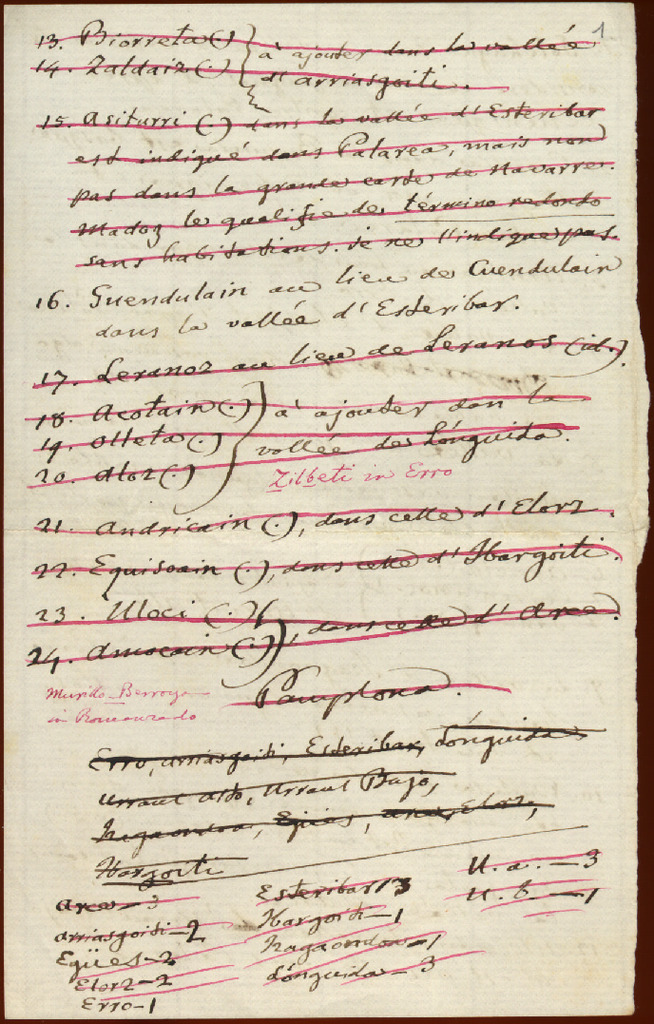 1
13. Biorreta (.)
14. Zaldaiz (.)
à ajouter dans la vallée
d'Arriasgoiti.
15. Asiturri (.) dans la vallée d'Esteribar
est indiqué dans Palarea, mais non
pas dans la grande carte de Navarre.
Madoz le qualifie de término redondo
sans habitations. je ne l'indique pas.
16. Guendulain au lieu de Cuendulain
dans la vallée d'Esteribar.
17. Leranoz au lieu de Leranos (id.).
18. Acotain (.)
19. Olleta (.)
20. Aloz (.)
à ajouter dan la
vallée de Lónguida.
Zilbeti in Erro
21. Andricain (.), dans celle d'Elorz.
22. Equisoain (.), dans celle d'Ibargoiti.
23. Uloci (.)
24. Amocain (.)
, dans celle d'Arce.
Murillo-Berroya
in Romanzado
Pamplona.
Erro, Arriasgoiti, Esteribar, Lónguida
Urraul alto, Urraul Bajo,
Izagaondoa, Egüés, Arce, Elorz,
Ibargoiti
Arce - 3
Arriasgoiti - 2
Egües - 2
Elorz - 2
Erro - 1
Esteribar 3
Ibargoiti - 1
Izagaondoa - 1
Lónguida - 3
U. a. - 3
U. b. - 1